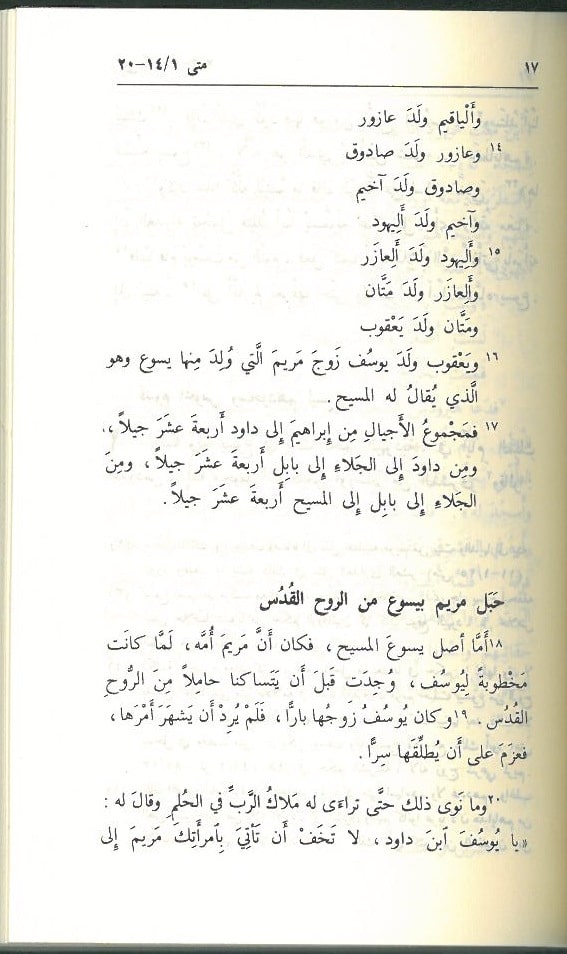 ١٧ متى ١/١٤-٢٠
وأَلْياقيم ولَدَ عازور
١٤ وعازور ولَدَ صادوق
وصادوق ولَدَ آخيم
وآخيم ولَدَ أَلِيهود
١٥ وأَلِيهود ولَدَ أَلِعازَر
وأَلِعازَر ولَدَ مَتَّان
ومَتَّان ولَدَ يَعْقوب
١٦ ويَعْقوب ولَدَ يوسُف زَوجَ مَريمَ الَّتي وُلِدَ مِنها يسوع وهو
الَّذي يُقالُ له المسيح.
١٧ فمَجْموعُ الأَجيالِ مِن إِبراهيمَ إِلى داود أَربعةَ عَشَرَ جيلاً،
ومِن داودَ إِلى الجَلاءِ إِلى بابِل أَربعةَ عَشَرَ جيلاً، ومِنَ
الجَلاءِ إِلى بابِل إِلى المسيح أَربعةَ عَشَرَ جيلاً.
حَبَل مريم بيسوع من الروح القُدُس
١٨أَمَّا أَصل يسوعَ المسيح، فكان أَنَّ مَريمَ أُمَّه، لَمَّا كانَت
مَخْطوبةً لِيُوسُف، وُجِدَت قَبلَ أَن يَتَساكنا حامِلاً مِنَ الرُّوحِ
القُدُس. ١٩وكان يُوسُفُ زَوجُها بارًّا، فَلَمْ يُرِدْ أَن يَشهَرَ أَمْرَها،
فعزَمَ على أَن يُطلِّقَها سِرًّا.
٢٠وما نوى ذلك حتَّى تراءَى له مَلاكُ الرَّبِّ في الحُلمِ وقالَ له:
«يا يُوسُفَ ٱبنَ داود، لا تَخَفْ أَن تَأتِيَ بِٱمرأَتِكَ مَريمَ إِلى